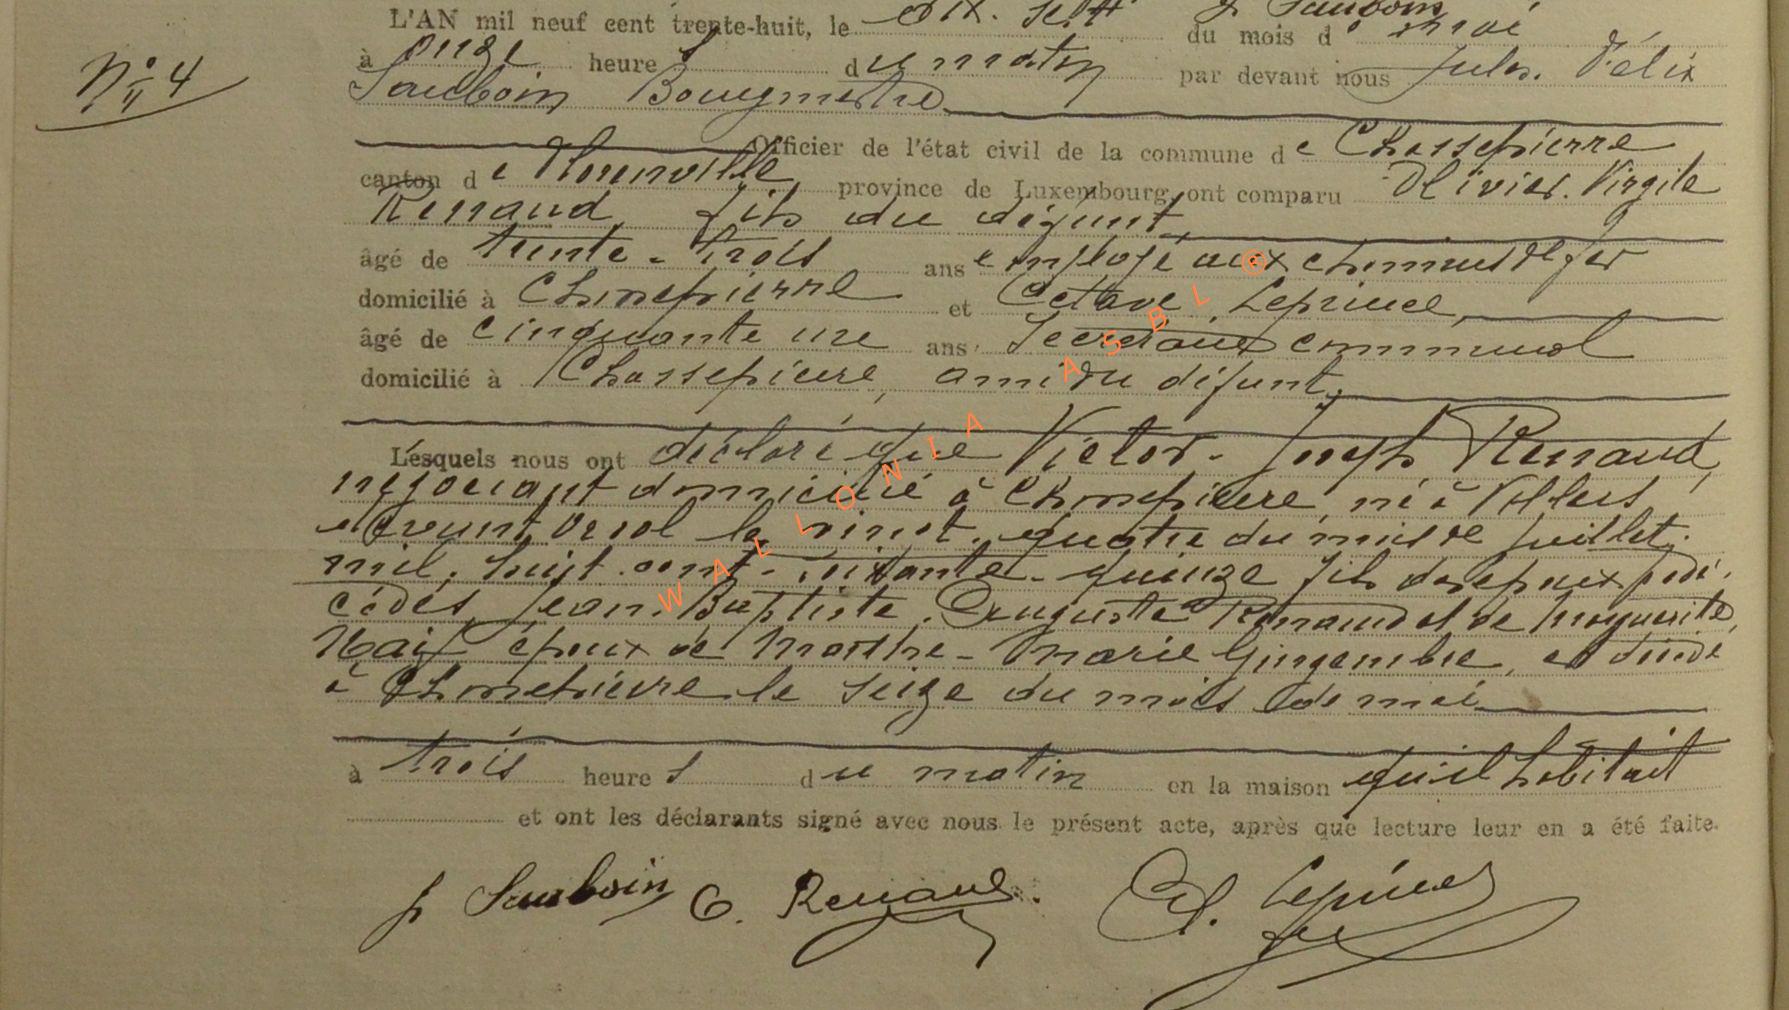 J. Sauboin
L'AN mil neuf cent trente-huit, le dix-sept du mois de mai
N° 4
à onze heures du matin par devant nous Jules Félix
Sauboin Bourgmestre
Officier de l'état civil de la commune de Chassepierre
canton de Florenville, province de Luxembourg, ont comparu Olivier Virgile
Renaud, fils du défunt,
âgé de trente-trois ans employé aux chemins de fer
domicilié à Chassepierre et Octave Leprince,
âgé de cinquante une ans, Secrétaire communal
domicilié à Chassepierre, ami du défunt,
Lesquels nous ont déclaré que Victor-Joseph Renaud,
négociant domicilié à Chassepierre, né à Villers
devant Orval le vingt-quatre du mois de juillet
mil huit cent soixante-quinze fils des époux prédé-
cédés Jean-Baptiste Auguste Renaud et de Marguerite
époux de Marthe-Marie Gingembre, est décédé
à Chassepierre le seize du mois de mai
à trois heures du matin en la maison qu'il habitait
et ont les déclarants signé avec nous le présent acte, après que lecture leur en a été faite.
J Sauboin O. Renaud O. Leprince
WALLONIA ASBL ®